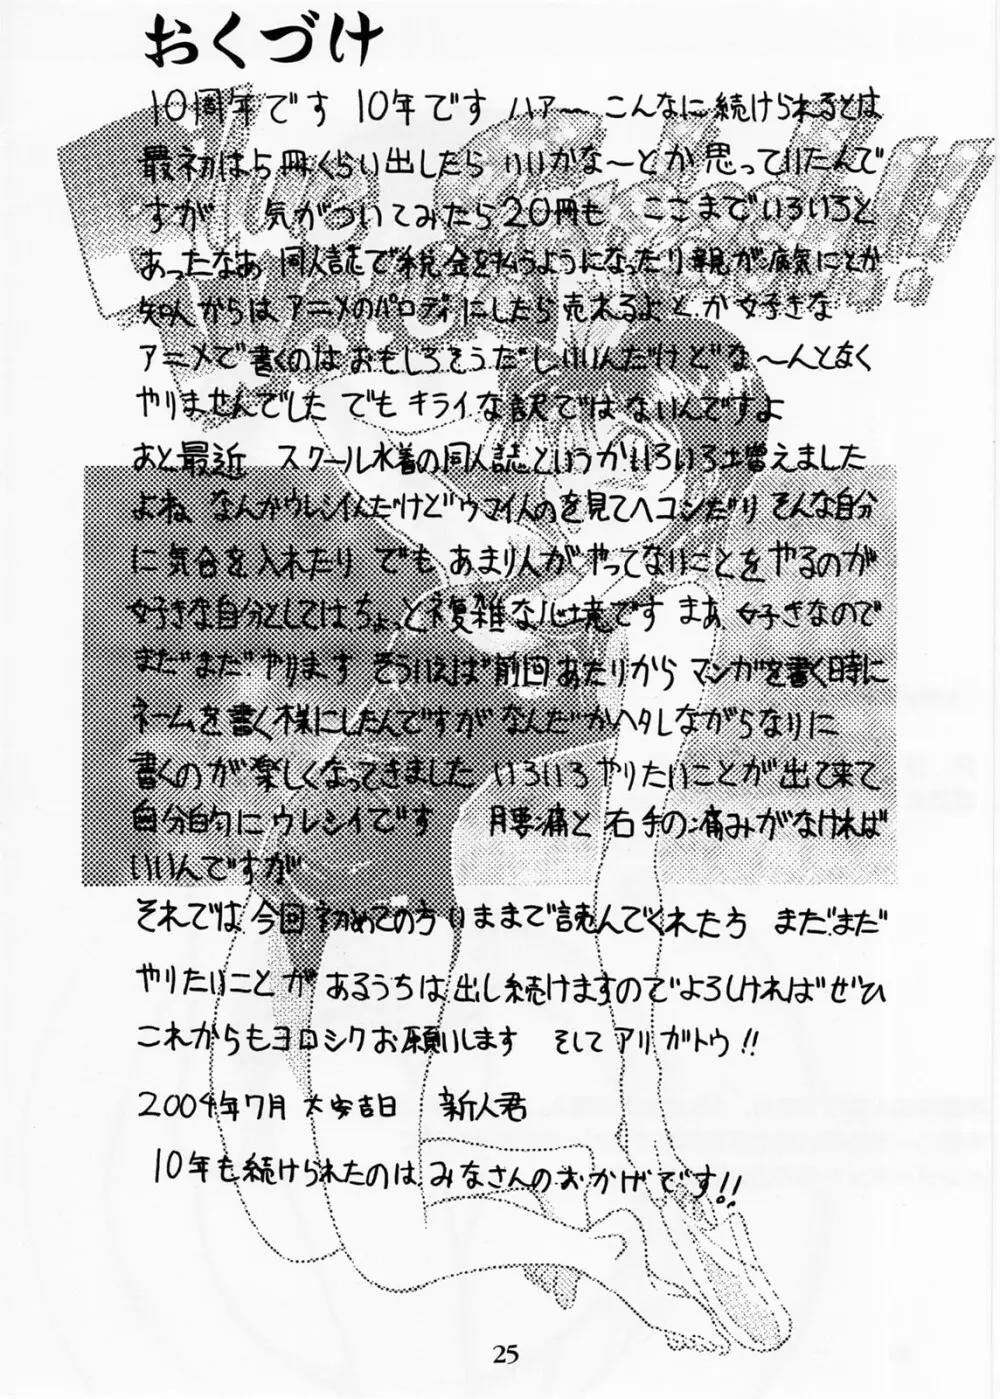 おくづけ
10周年です 10年です ハァ〜 こんなに続けられるとは
最初は5冊くらい出したら いいかな〜とか思っていたんで
すが 気がついてみたら20冊も ここまでいろいろと
あったなあ 同人誌で税金を払うようになったり親が病気にとか
知人からは アニメのパロディにしたら売れるよとか 好きな
アニメで書くのはおもしろそうだしいいんだけどな〜んとなく
やりませんでした でもキライな訳ではないんですよ
あと最近 スクール水着の同人誌というかいろいろ増えました
よね なんかウレシイんだけどウマイ人のを見てヘコンだり そんな自分
に気合を入れたり でも あまり人がやってないことをやるのが
好きな自分としてはちょっと複雑な心境です まあ 好きなので
まだまだ やります そういえば前回あたりから マンガを書く時に
ネームを書く様にしたんですが なんだかヘタしながらなりに
書くのが楽しくなってきました いろいろやりたいことが出て来て
自分的にウレシイです 腰痛と 右手の痛みがなければ
いいんですが
それでは 今回初めての方 いままで読んでくれた方 まだまだ
やりたいことが あるうちは出し続けますのでよろしければぜひ
これからもヨロシクお願いします そして アリガトウ!!
2004年7月 大安吉日 新人君
10年も続けられたのは みなさんのおかげです!!
25